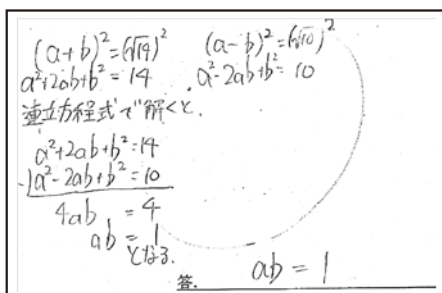 (a+b)²=(√14)²
a²+2ab+b²=14
(a-b)²=(√10)²
a²-2ab+b²=10
連立方程式で解くと、
a²+2ab+b²=14
-)a²-2ab+b²=10
4ab=4
ab=1
となる.
答. ab=1